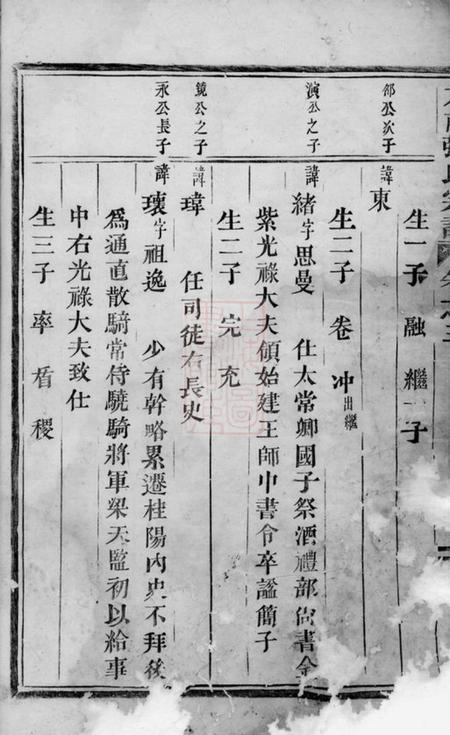 生一子融繼一子
邵公次子 諱東
生二子 卷 冲出繼
演公之子 諱緒字思曼 仕太常卿國子祭酒禮部尙書金
紫光祿大夫領始建王師中書令卒謚簡子
生二子 完 充
鏡公之子 諱瑋 任司徒右長史
永公長子 諱瓌字祖逸 少有幹略累遷桂陽內史不拜後
爲通直散騎常侍驍騎將軍梁天監初以給事
中右光祿大夫致仕
生三子率盾稷